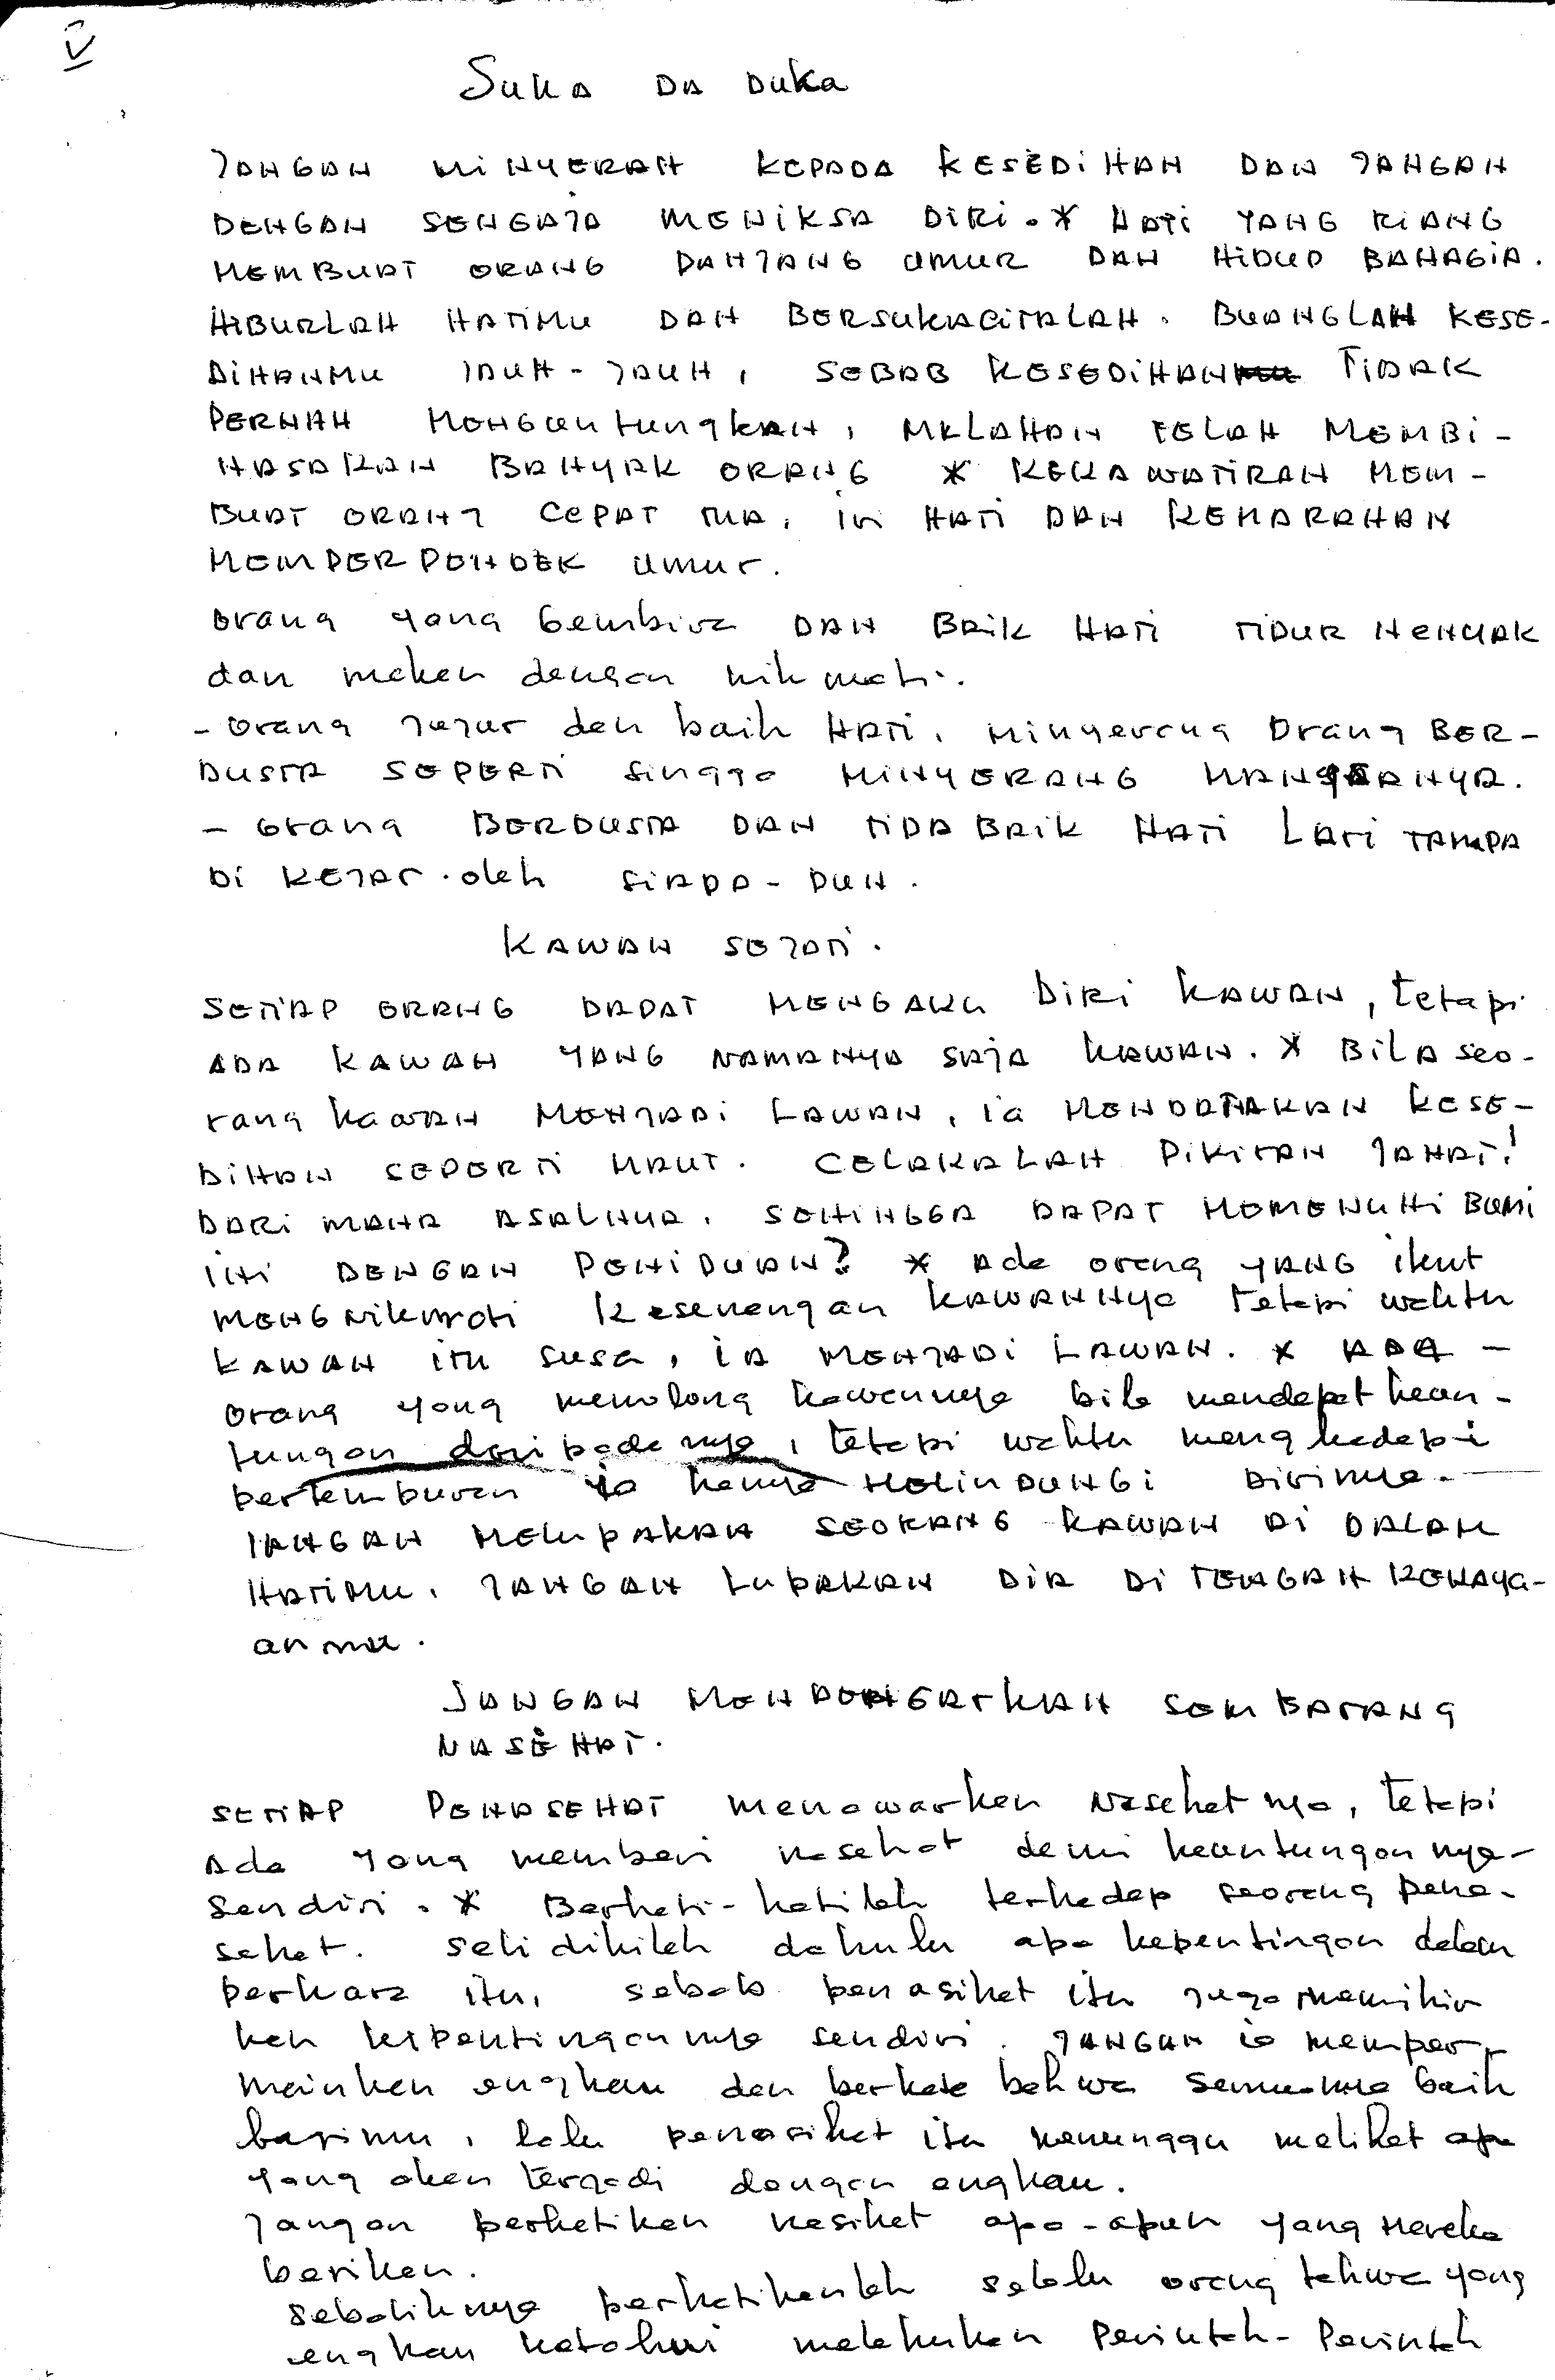 V
Suka DA Duka
JANGAN MINYERAH KEPADA KESEDIHAN DAN JANGAN
DENGAN SENGAJA MENIKSA DIRI. * HATI YANG RIANG
MEMBUAT ORANG PANJANG UMUR DAN HIDUP BAHAGIA.
HIBURLAH HATIMU DAN BERSUKACITALAH. BUANGLAH KESE-
DIHANMU JAUH-JAUH, SEBAB KESEDIHAN TIDAK
PERNAH MENGUNTUNGKAN, MALAHAN TELAH MEMBI-
NASAKAN BANYAK ORANG * KEKAWATIRAN MEM-
BUAT ORANG CEPAT TUA, iri HATI DAN KEMARAHAN
MEMPERPENDEK umur.
orang yang Gembira DAN BAIK HATI TIDUR NENYAK
dan makan dengan nikmati.
- Orang jujur dan baik HATI, Minyerang Orang BER-
DUSTA SEPERTI Singga MINYERANG MANGSANYA.
- Orang BERDUSTA DAN TIDA BAIK HATI Lari TAMPA
Di KEJAR oleh SIAPA-PUN.
KAWAN SEJATI.
SETIAP ORANG DAPAT MENGAKU DIRI KAWAN, tetapi
ADA KAWAN YANG NAMANYA SAJA KAWAN. * BILA seo-
rang kawan MENJADI LAWAN, ia MENDATAKAN KESE-
DIHAN SEPERTI MAUT. CELAKALAH PIKIRAN JAHAT!
DARI MANA ASALNYA, SEHINGGA DAPAT MEMENUHI BUMI
INI DENGAN PENIPUAN? * Ada orang YANG ikut
MENGNikmati Kesenangan KAWANNya Tetapi waktu
KAWAN itu susa, IA MENJADI LAWAN. * ADA -
orang yang menolong kawannya bila mendapat keun-
tungan daripadanya, tetapi waktu menghadapi
pertempuran ia hanya MELINDUNGI Dirinya.
JANGAN MELUPAKAN SEORANG KAWAN DI DALAM
HATIMU, JANGAN LUPAKAN DIA DI TENGAH KEKAYA-
anmu.
JANGAN MENDENGARKAN SEMBARANG
NASEHAT.
SETIAP PENASEHAT menawarkan Nasehatnya, tetapi
Ada yang memberi nasehat demi keuntungannya-
Sendiri. * Berhati-hatilah terhadap seorang pena-
sehat. selidikilah dahulu apa kepentingan dalam
perkara itu, sebab penasihat itu juga memikir
kan kepentingannya sendiri. JANGAN ia memper-
mainkan engkau dan berkata bahwa semuanya baik
bagimu, lalu penasihat itu menunggu melihat apa
yang akan terjadi dengan engkau.
Jangan perhatikan nasihat apa-apun yang Mereka
berikan.
Sebaliknya perhatikanlah selalu orang takwa yang
engkau ketahui melakukan Perintah-Perintah